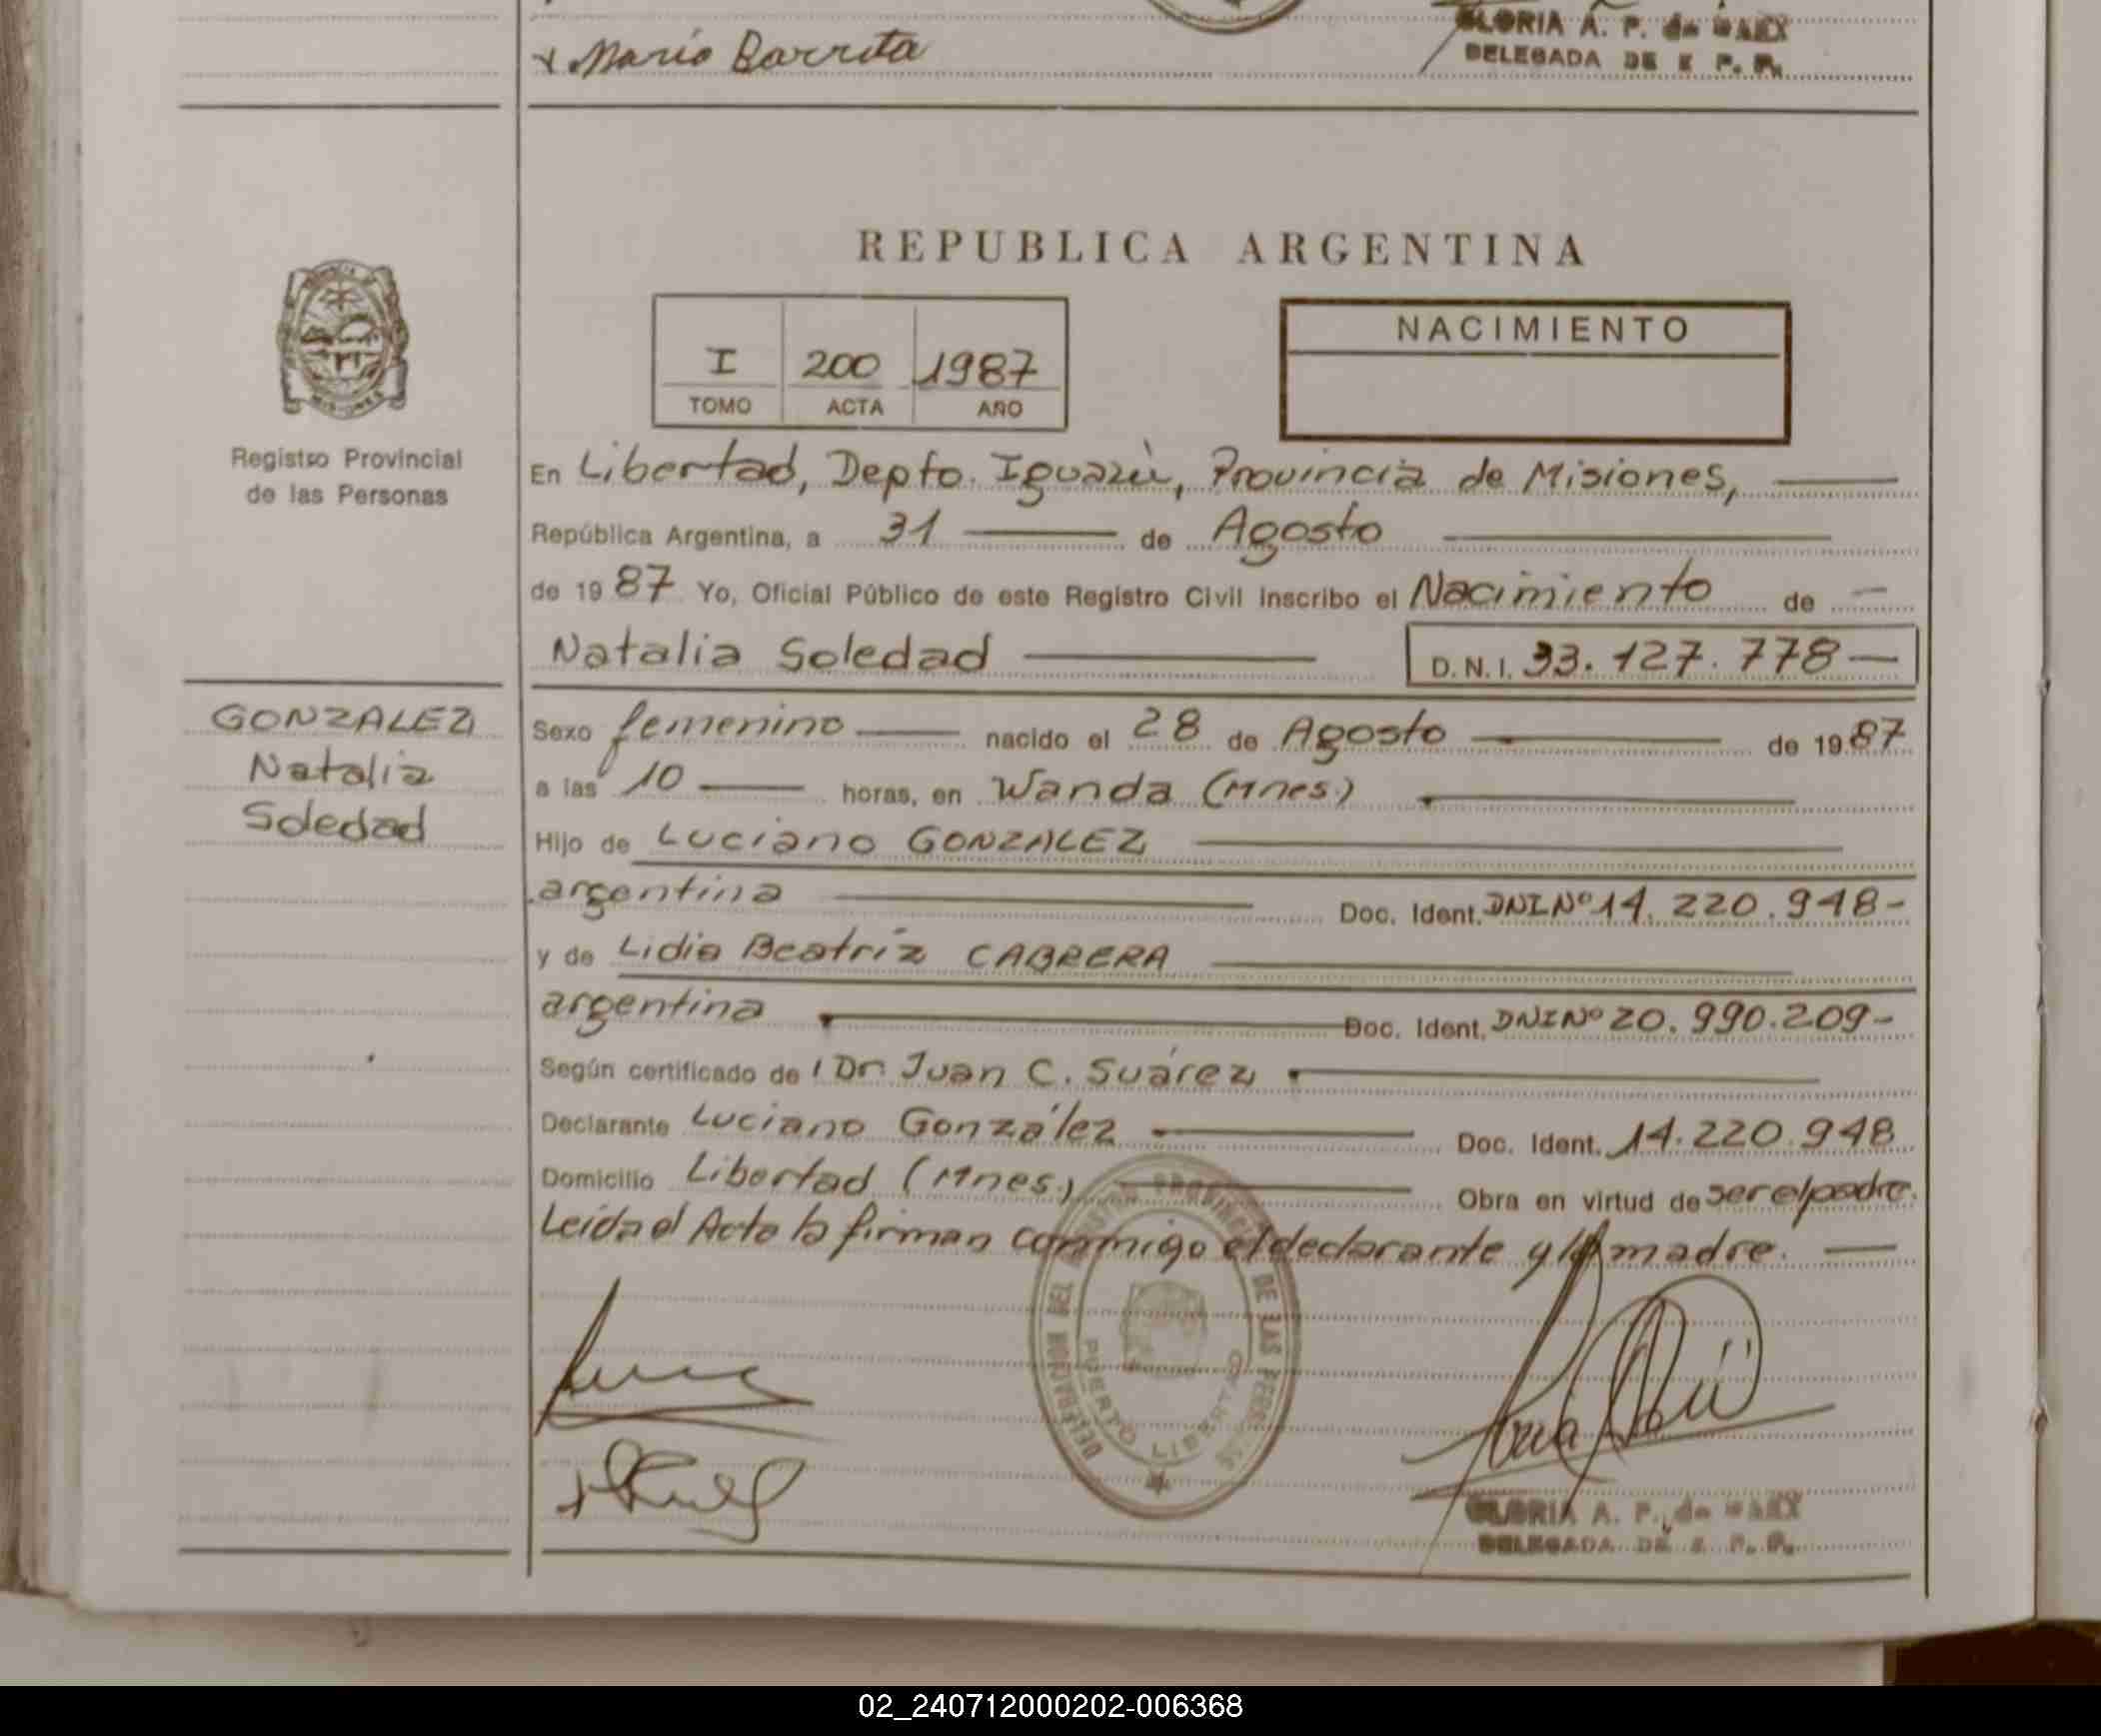 x Mario Barrita
GLORIA A. P. de
DELEGADA DE P. P.
REPUBLICA ARGENTINA
I 200 1987
TOMO ACTA AÑO
NACIMIENTO
MISIONES
Registro Provincial
de las Personas
En Libertad, Depto. Iguazú, Provincia de Misiones,
República Argentina, a 31 de Agosto
de 1987 Yo, Oficial Público de este Registro Civil inscribo el Nacimiento de
Natalia Soledad D.N.I. 33.127.778
GONZALEZ
Natalia
Soledad
Sexo femenino nacido el 28 de Agosto de 1987
a las 10 horas, en Wanda (Mnes.)
Hijo de Luciano GONZALEZ
argentina Doc. Ident. DNI Nº 14.220.948-
y de Lidia Beatriz CABRERA
argentina Doc. Ident. DNI Nº 20.990.209-
Según certificado de l Dr Juan C. Suárez
Declarante Luciano González Doc. Ident. 14.220.948
Domicilio Libertad (Mnes.) Obra en virtud de ser el padre.
Leída el Acta la firman conmigo el declarante y la madre.
DELEGACION DEL REGISTRO PROVINCIAL DE LAS PERSONAS
PUERTO LIBERTAD
GLORIA A. P. de
DELEGADA DE P. P.
02_240712000202-006368